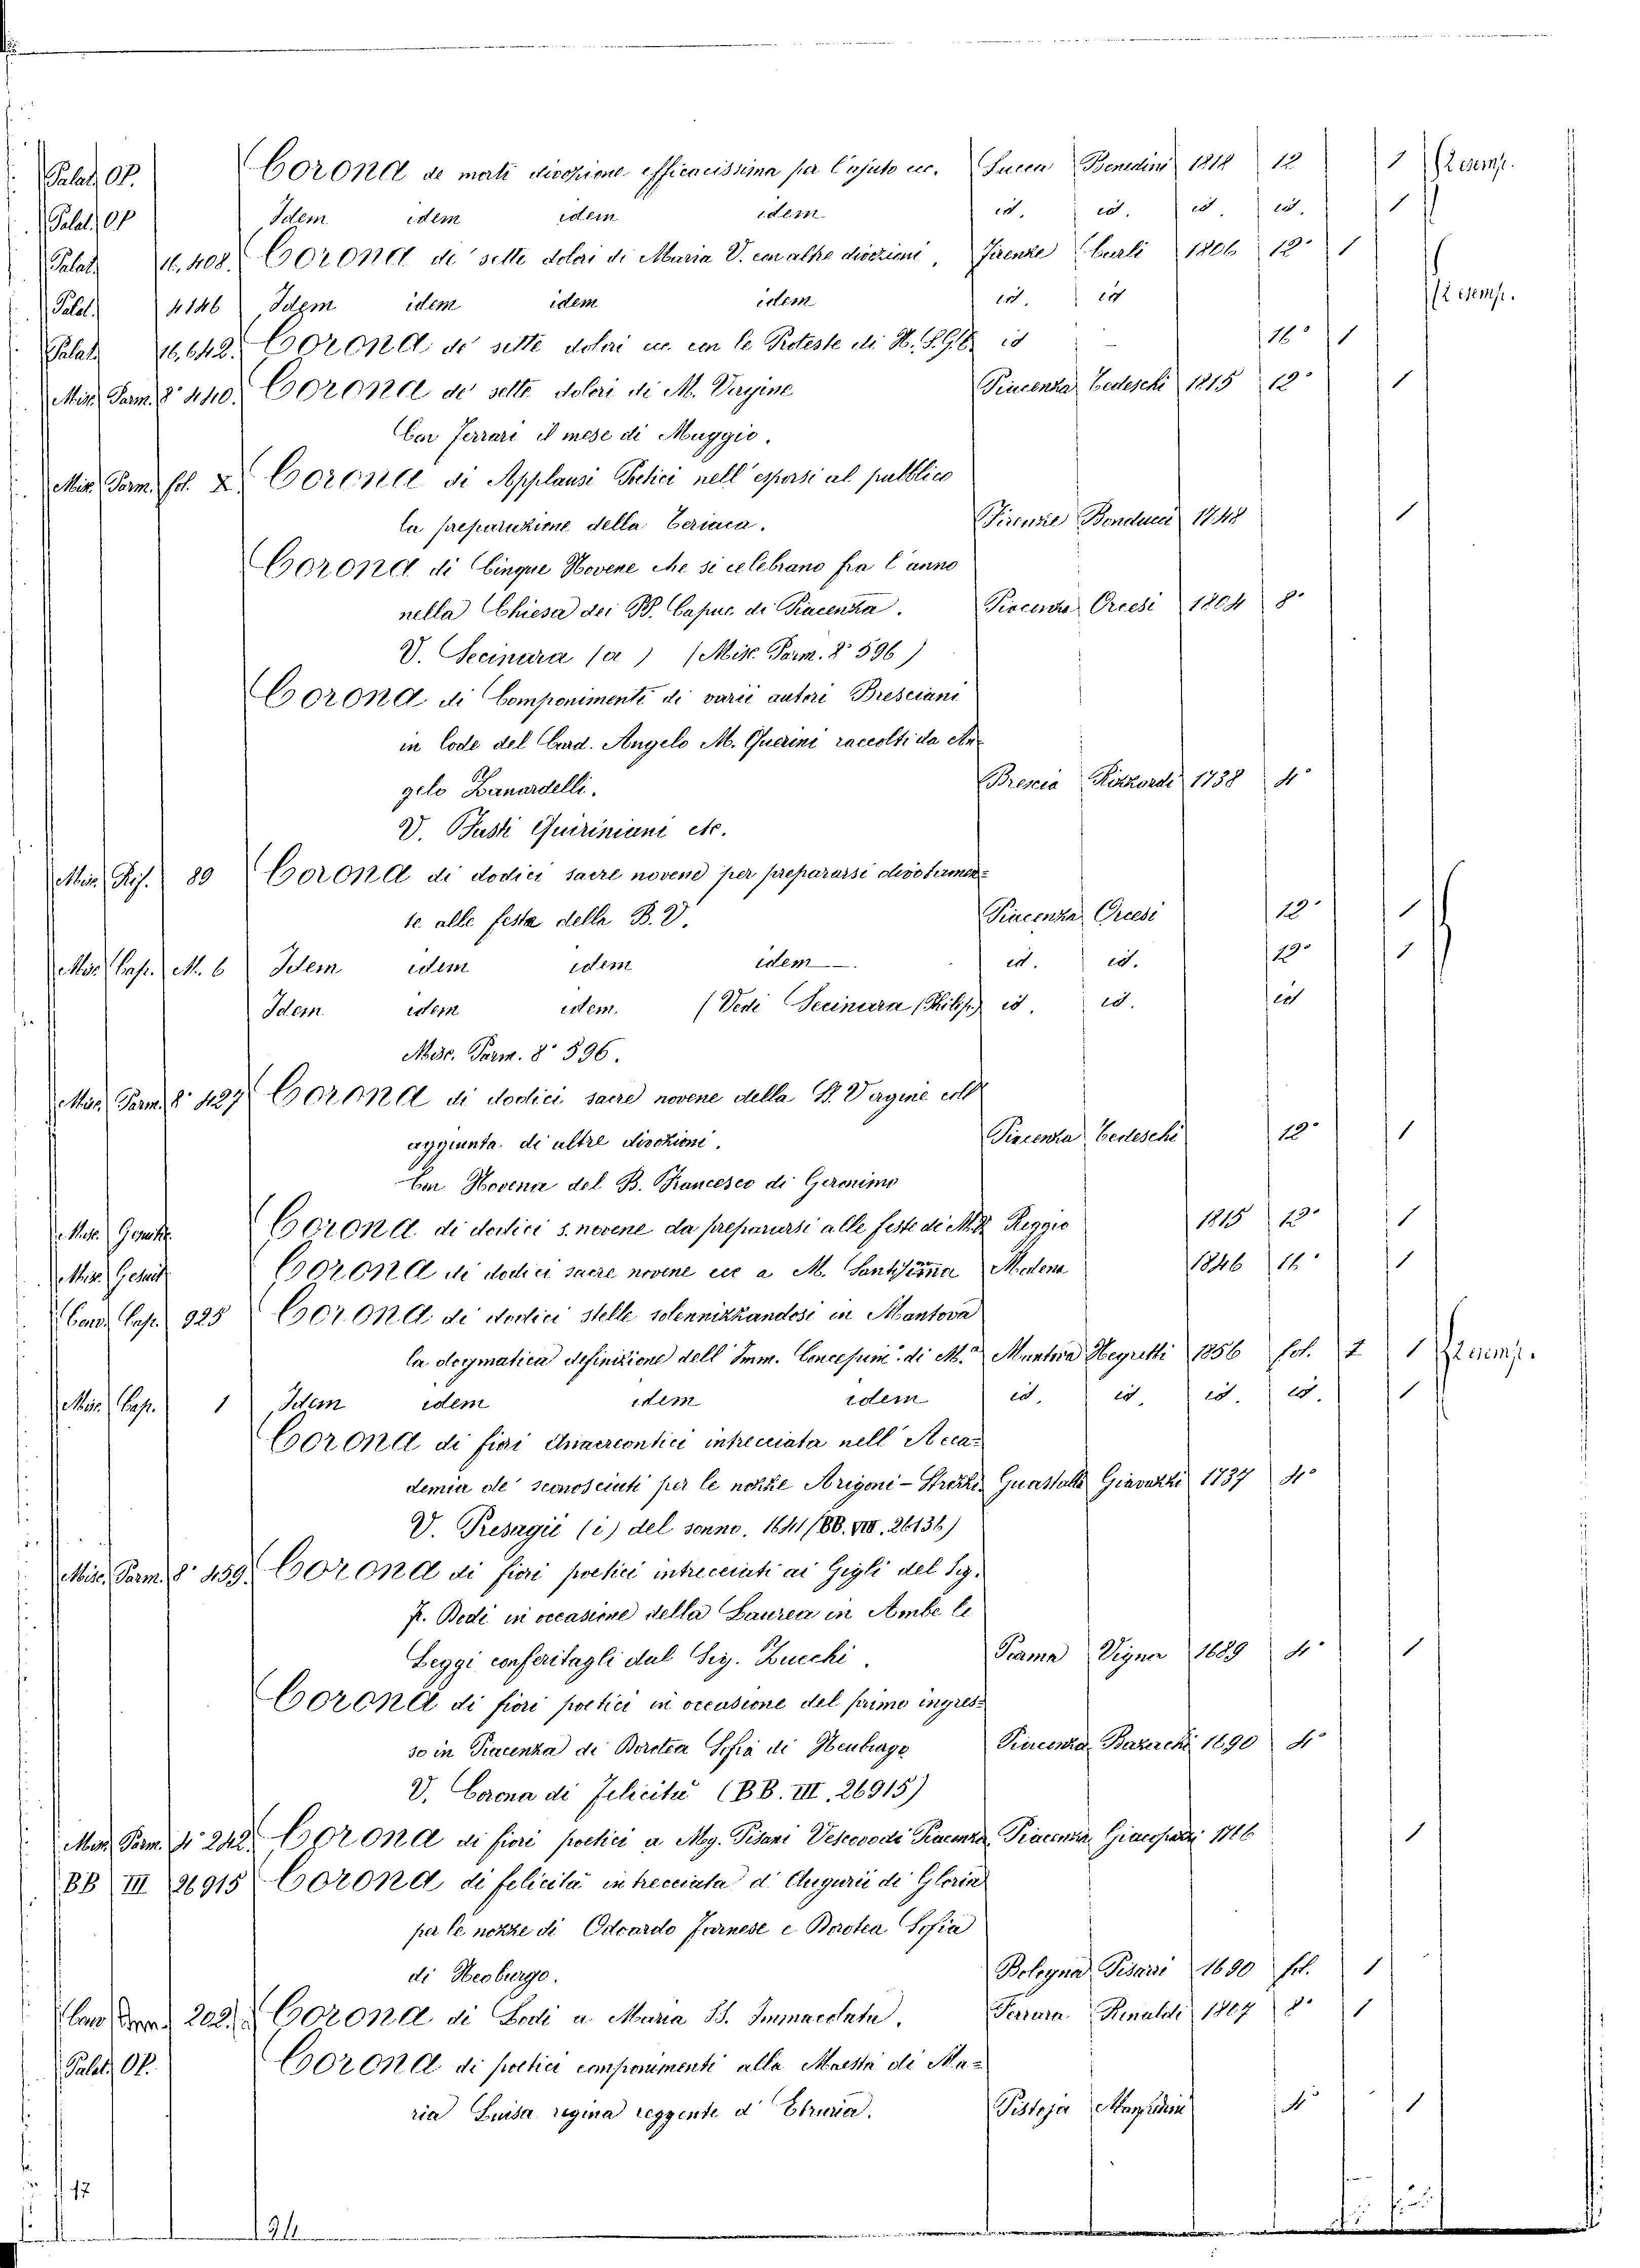 Palat. OP. Corona de morti divozione efficacissima per l'ajuto ec. Lucca Benedini 1818 12 1 2 esemp.
Palat. OP Idem idem idem idem id. id. id. id. 1
Palat. 16.408. Corona de' sette dolori di Maria V. con altre divozioni, Firenze Carli 1806 12° 1
Palat. 4146 Idem idem idem idem id. id 2 esemp.
Palat. 16.642. Corona de' sette dolori ec con le Proteste di N. S. G. C. id 16° 1
Misc. Parm. 8° 440. Corona de' sette dolori di M. Vergine Piacenza Tedeschi 1815 12° 1
Con Ferrari il mese di Maggio.
Misc. Parm. fol. X. Corona di Applausi Poetici nell'esporsi al pubblico
la preparazione della Teriaca. Firenze Bonducci 1748 1
Corona di Cinque Novene che si celebrano fra l'anno
nella Chiesa dei PP. Capuc. di Piacenza. Piacenza Orcesi 1804 8°
V. Secinara (a) (Misc. Parm. 8° 596)
Corona di Componimenti di varii autori Bresciani
in lode del Card. Angelo M. Querini raccolti da An-
gelo Zanardelli. Brescia Rizzardi 1738 4°
V. Fasti Quiriniani etc.
Misc. Rif. 89 Corona di dodici sacre novene per prepararsi divotamen-
te alle feste della B. V. Piacenza Orcesi 12° 1
Misc. Cap. M. 6 Idem idem idem idem. id. id. 12° 1
Idem idem idem. (Vedi Secinara (Philip.) id. id. id
Misc. Parm. 8° 596.
Misc. Parm. 8° 427 Corona di dodici sacre novene della B. Vergine coll'
aggiunta di altre divozioni. Piacenza Tedeschi 12° 1
Con Novena del B. Francesco di Geronimo
Misc. Gesuit. Corona di dodici s. novene da prepararsi alle feste di M. V. Reggio 1815 12° 1
Misc. Gesuit Corona di dodici sacre novene ecc a M. Santissima Modena 1846 16° 1
Conv. Cap. 925 Corona di dodici stelle solennizzandosi in Mantova
la dogmatica definizione dell'Imm. Concepim. di M.a Mantova Negretti 1856 fol. 2 1 2 esemp.
Misc. Cap. 1 Idem idem idem idem id. id. id. id. 1
Corona di fiori Anacreontici intrecciata nell'Acca-
demia de' sconosciuti per le nozze Arigoni - Guastalla Giavazzi 1737 4°
V. Presagii (i) del senno. 1641 (BB. VIII. 26136)
Misc. Parm. 8° 459. Corona di fiori poetici intrecciati ai Gigli del Sig.
P. Bodi in occasione della Laurea in Ambe le
Leggi conferitagli dal Sig. Zucchi. Parma Vigna 1689 4° 1
Corona di fiori poetici in occasione del primo ingres-
so in Piacenza di Dorotea Sofia di Neuburgo Piacenza Bazachi 1690 4°
V. Corona di Felicità (BB. III. 26915)
Misc. Parm. 4° 242. Corona di fiori poetici a Mg. Pisani Vescovo di Piacenza Piacenza Giacopazzi 1766 1
BB III 26915 Corona di felicità intrecciata d'Augurii di Gloria
per le nozze di Odoardo Farnese e Dorotea Sofia
di Neoburgo. Bologna Pisarri 1690 fol. 1
202. Corona di Lodi a Maria SS. Immacolata. Ferrara Rinaldi 1807 8° 1
Palat. OP. Corona di poetici componimenti alla Maestà di Ma-
ria Luisa regina reggente d'Etruria. Pistoja Manfredini 4° 1
12
94